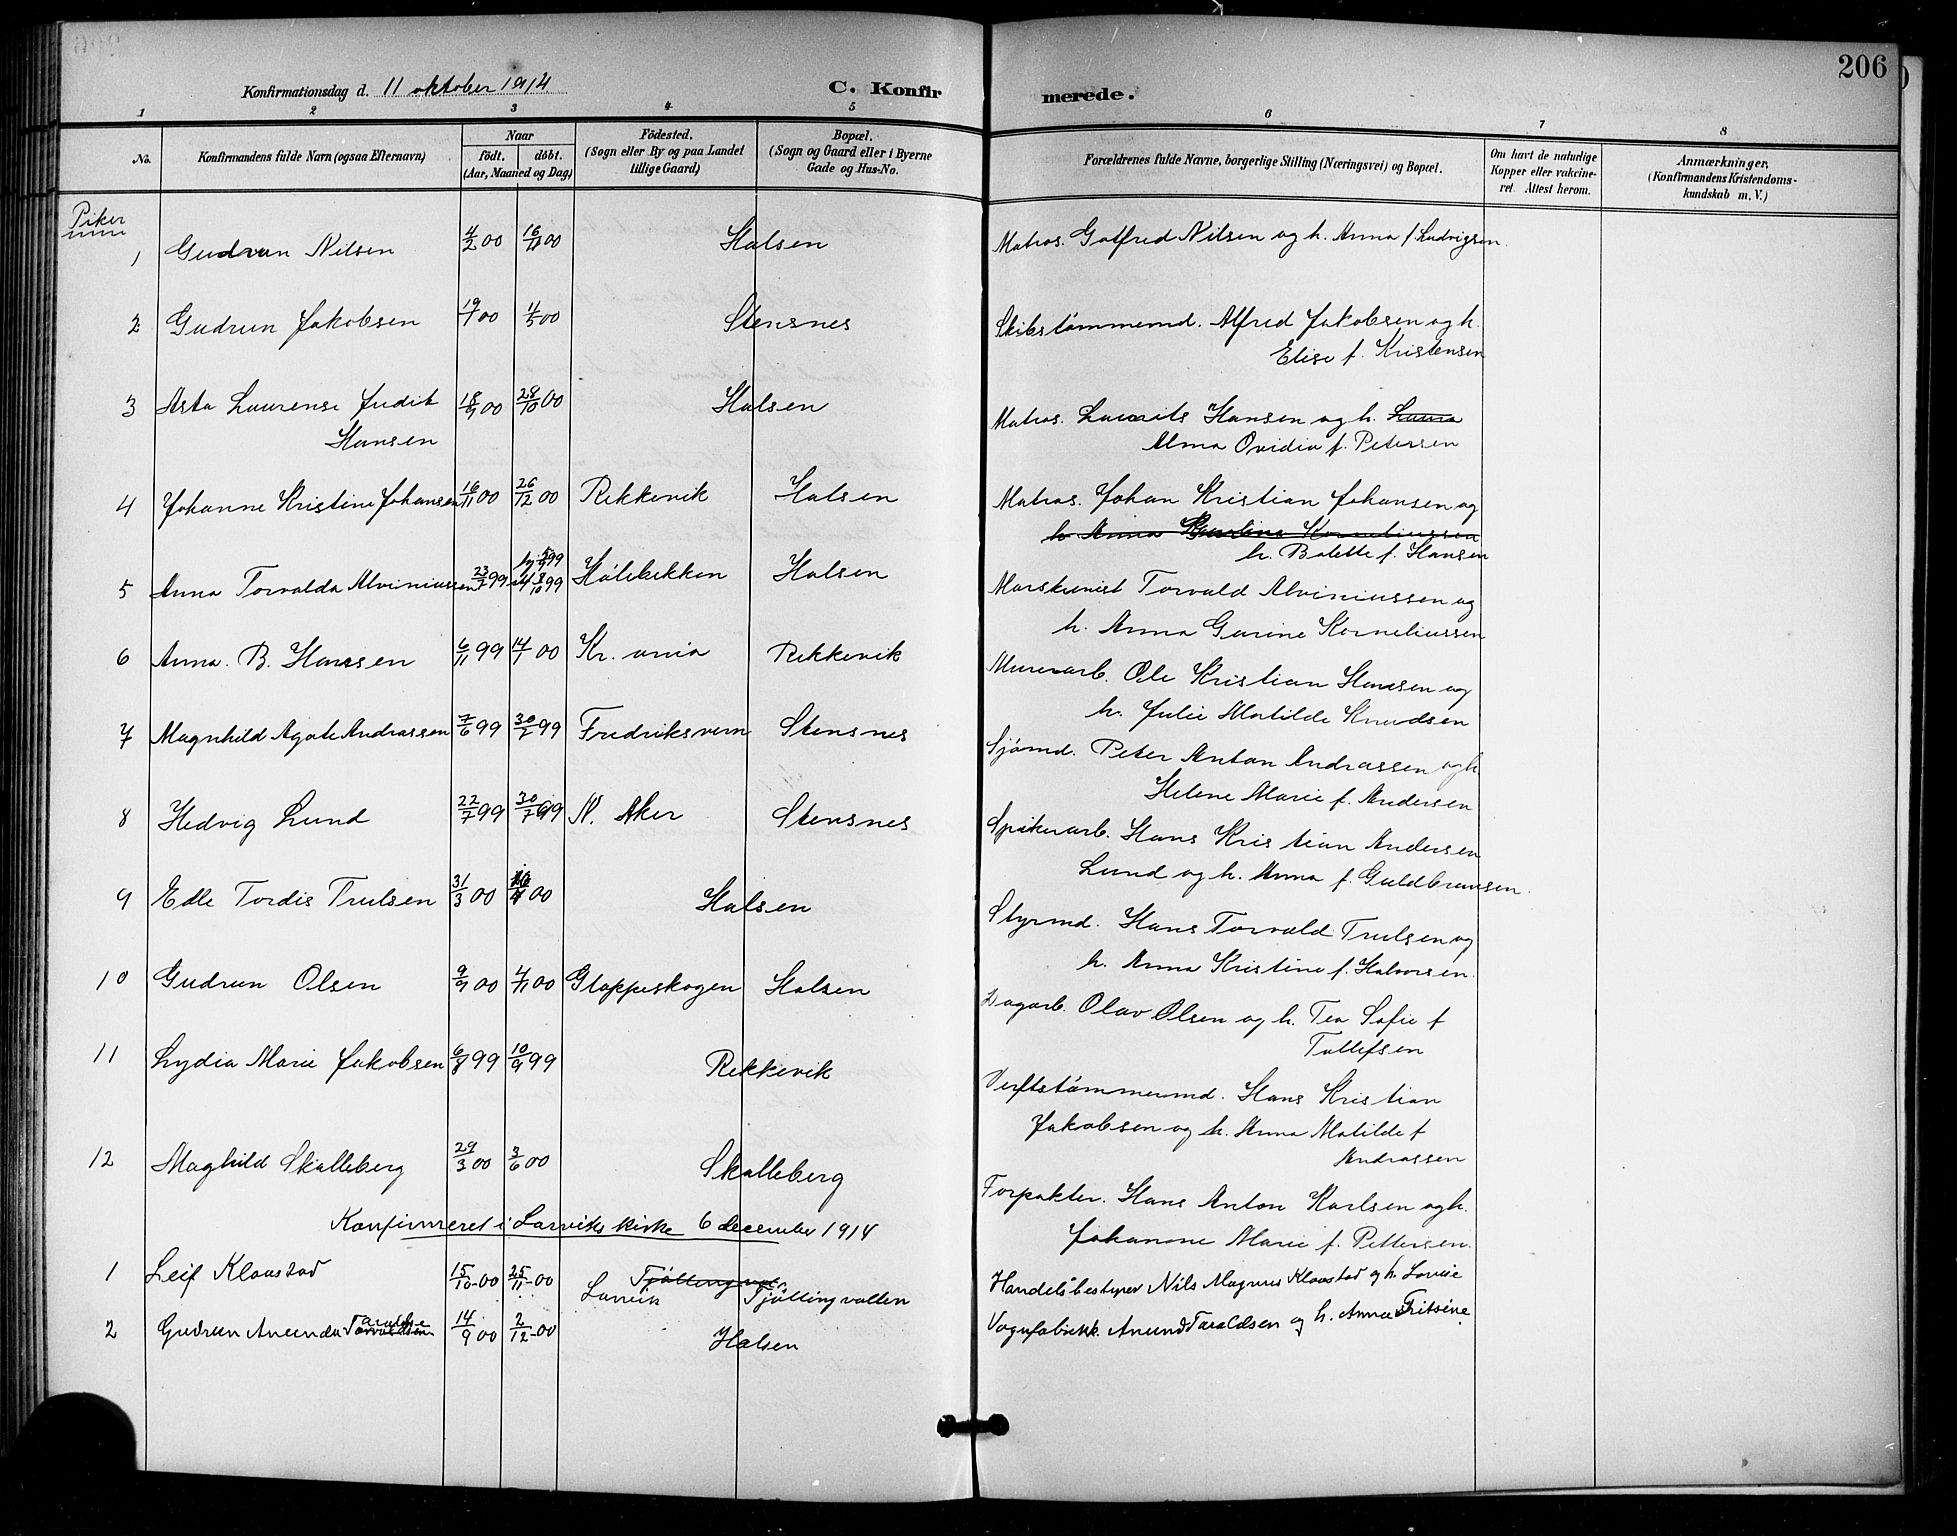 206
Konfirmationsdag d. 11 oktober 1914
C. Konfir merede.
1 2 3 4 5 6 7 8
No.
Konfirmandens fulde Navn (ogsaa Efternavn)
Naar
født. døbt.
(Aar, Maaned og Dag)
Fødested.
(Sogn eller By og paa Landet
tillige Gaard)
Bopæl.
(Sogn og Gaard eller i Byerne
Gade og Hus-No.
Forældrenes fulde Navne, borgerlige Stilling (Næringsvei) og Bopæl.
Om havt de naturlige
Kopper eller vakcine-
ret. Attest herom.
Anmærkninger.
(Konfirmandens Kristendoms-
kundskab m. V.)
Piker
1 Gudrun Nilsen 4/2 00 16/4 00 Halsen Matros. Gotfred Nilsen og h. Anna f. Ludvigsen.
2 Gudrun Jakobsen 19/1 00 11/5 00 Stensnes Skibstømmermd. Alfred Jakobsen og h.
Elise f. Kristensen
3 Asta Laurense Judit 18/9 00 28/10 00 Halsen Matros. Laurits Hansen og h. Laura
Hansen Alma Ovidia f. Petersen
4 Johanne Kristine Johansen 16/11 00 26/12 00 Rekkevik Halsen Matros. Johan Kristian Johansen og
h. Anna Gurine Korneliussen
h. Bolette f. Hansen
5 Anna Torvalda Alviniussen 23/7 99 8/10 99 Hølebekken Halsen Marskinist Torvald Alviniussen og
h. Anna Gurine Korneliussen
6 Anna. B. Hansen 6/11 99 14/1 00 Kr. ania Rekkevik Murerarb. Ole Kristian Hansen og
h. Julie Matilde Knudsen
7 Magnhild Agate Andrassen 7/6 99 30/7 99 Fredriksvern Stensnes Sjømd. Peter Anton Andrassen og h.
Helene Marie f. Andersen
8 Hedvig Lund 22/7 99 30/7 99 N. Aker Stensnes Spikerarb. Hans Kristian Andersen
Lund og h. Anna f. Guldbransen.
9 Edle Tordis Trulsen 31/3 00 00 Halsen Styrmd. Hans Torvald Trulsen og
h. Anna Kristine f. Halvorsen.
10 Gudrun Olsen 9/9 00 4/11 00 Gloppeskogen Halsen Dagarb. Olav Olsen og h. Tea Sofie f
Tollefsen
11 Lydia Marie Jakobsen 6/8 99 10/9 99 Rekkevik Verftstømmermd. Hans Kristian
Jakobsen og h. Anna Matilde f
Andrassen
12 Maghild Skalleberg 29/3 00 3/6 00 Skalleberg Forpakter. Hans Anton Karlsen og h.
Johanne Marie f. Pettersen.
Konfirmeret i Larviks kirke 6 december 1914
1 Leif Klaastad 15/10-00 25/11-00 Larvik Tjøllingvollen Handelsbestyrer Nils Magnus Klaastad og h. Lovise
2 Gudrun Anunda Taraldsen 14/9 00 2/12-00 Halsen Vognfabrikk. Anund Taraldsen og h. Anna Fritsine.